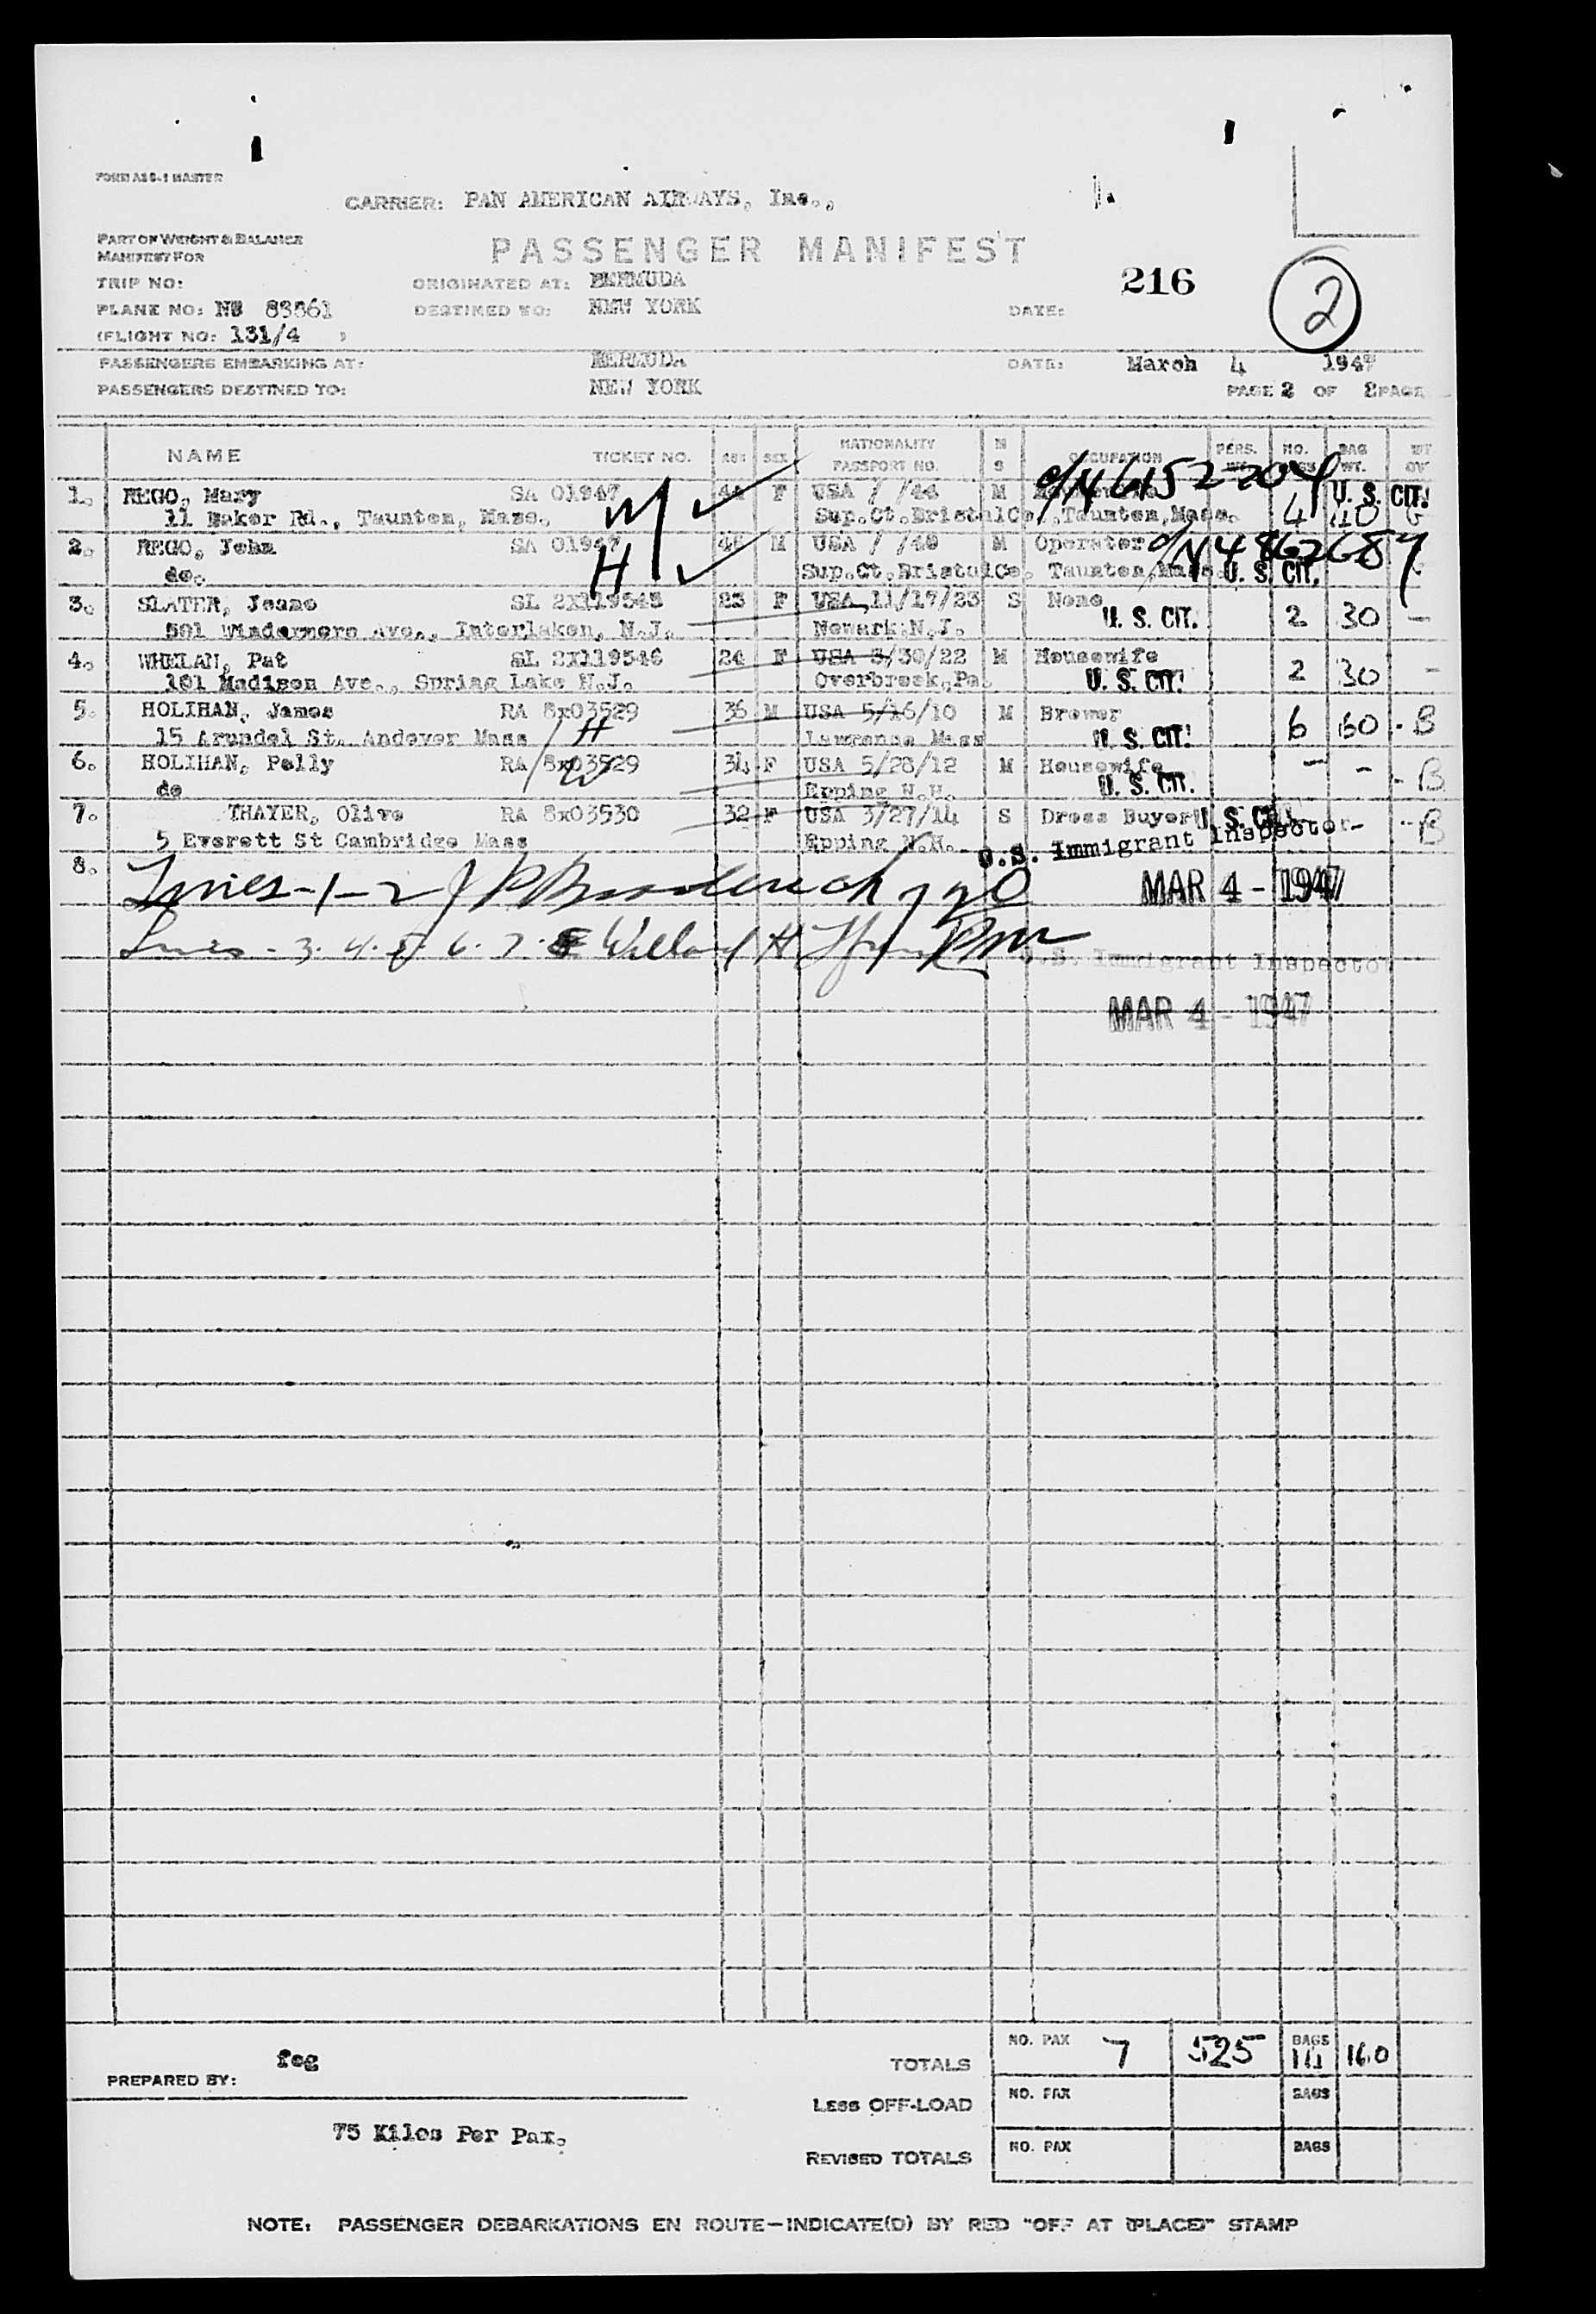 FORM ABC-1 MASTER
CARRIER: PAN AMERICAN AIRWAYS, Inc.,
PART OF WEIGHT & BALANCE
MANIFEST FOR
PASSENGER MANIFEST
216
2
TRIP NO:
ORIGINATED AT: BERMUDA
PLANE NO:
DESTINED TO: NEW YORK
DATE:
(FLIGHT NO: 131/4 )
PASSENGERS EMBARKING AT: BERMUDA DATE: March 4 1947
PASSENGERS DESTINED TO: NEW YORK PAGE 2 OF 2 PAGE
NAME TICKET NO. AGE SEX NATIONALITY PASSPORT NO. M S OCCUPATION PERS. WT. NO. BAGS BAG WT.
1. REGO, Mary SA 01947 44 F USA / /44 M 4 U. S. CIT.
11 Baker Rd., Taunton, Mass. W Sup.Ct.BristolCo.,Taunton,Mass.
2. REGO, John SA 01947 46 M USA / /40 M Operator
do. H Sup.Ct.BristolCo. Taunton,Mass. U. S. CIT.
3. SLATER, Jeane SL 2X119545 23 F USA 11/17/23 S None U. S. CIT. 2 30 -
501 Windermere Ave., Interlaken, N.J. Newark.N.J.
4. WHELAN, Pat SL 2X119546 24 F USA 3/30/22 M Housewife U. S. CIT. 2 30 -
101 Madison Ave., Spring Lake N.J. Overbrook,Pa.
5. HOLIHAN, James RA 8x03529 36 M USA 5/16/10 M Brewer U. S. CIT. 6 60 - B
15 Arundel St. Andover Mass H Lawrence Mass
6. HOLIHAN, Polly RA 8x03529 34 F USA 5/28/12 M Housewife U. S. CIT. - - - B
do W Epping N.H.
7. THAYER, Olive RA 8x03530 32 F USA 3/27/14 S Dress Buyer U. S. CIT. - - B
5 Everett St Cambridge Mass Epping N.H. U.S. Immigrant Inspector
8. Lines - 1 - 2 MAR 4 - 1947
Lines - 3. 4. 5. 6. 7. Willard H
U.S. Immigrant Inspector
MAR 4 - 1947
PREPARED BY: feg
TOTALS NO. PAX 7 525 BAGS 14 160
LESS OFF-LOAD NO. PAX BAGS
75 Kilos Per Pax.
REVISED TOTALS NO. PAX BAGS
NOTE: PASSENGER DEBARKATIONS EN ROUTE—INDICATE(D) BY RED "OFF AT (PLACE)" STAMP